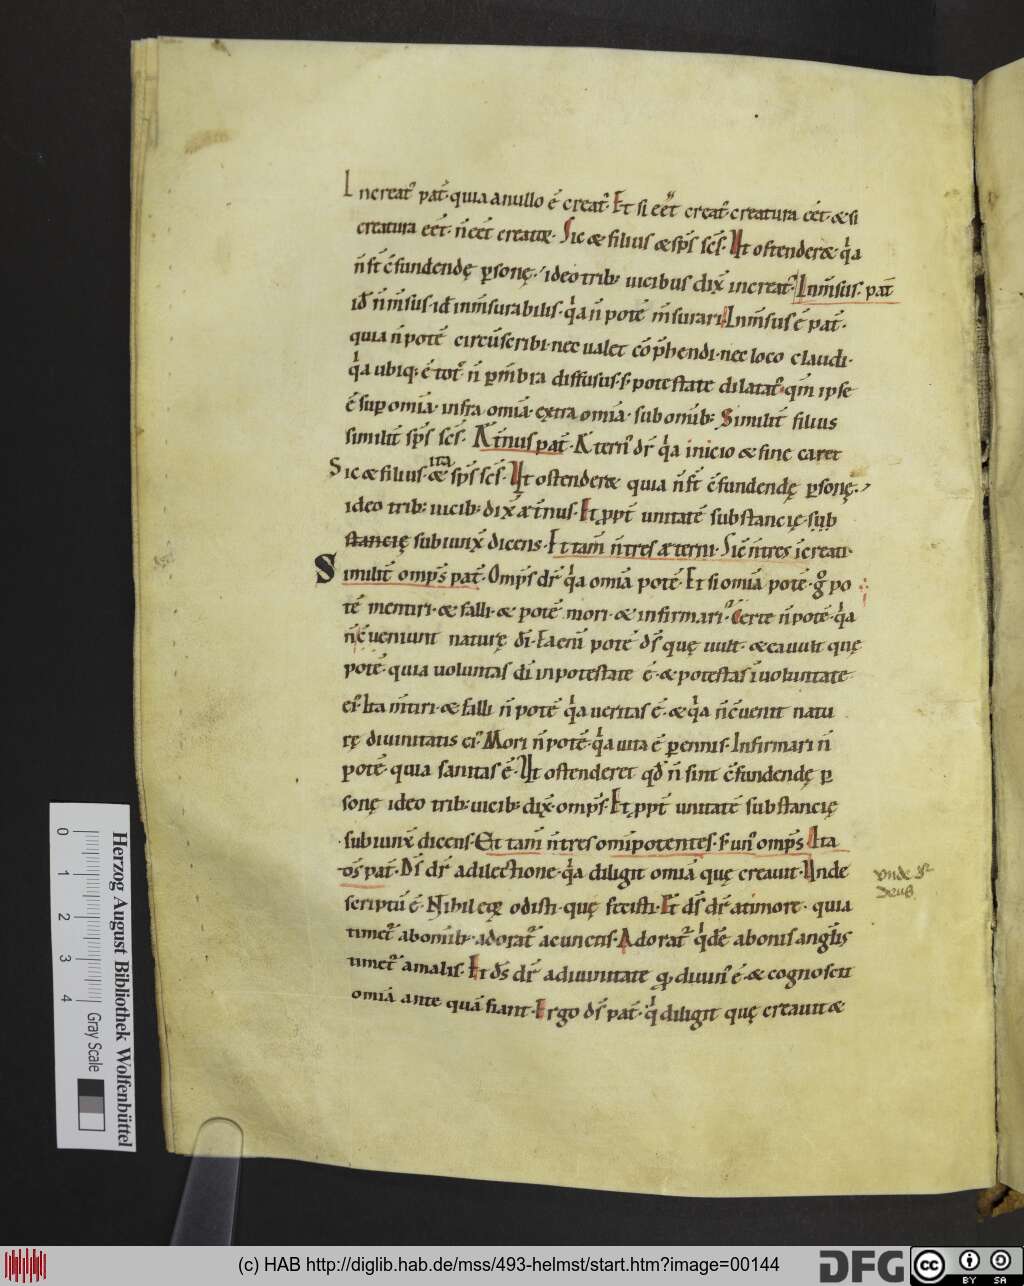 Increat᷒ pat̄·quia anullo ē creat᷒· Et si eēt creat᷒·creatura eēt·& si
creatura eēt·ñ eēt creatrix· Sic & filius & sp̄s sc̄s· Vt ostenderet q̇a
ñ st̄ c̄fundendę p̱sonę·ideo trib; uicibus dix̄ increat᷒· Inm̄sus·pat̄
id ñ m̄sus·id inm̄surabilis·q̇a ñ potē m̄surari· Inm̄sus ē pat̄·
quia ñ potē circūscribi·nec ualet cōp̄hendi·nec loco claudi·
q̇a ubiq; ē tot᷒·ñ p̱ m̄bra diffusus·s; potestate dilatat᷒·qm̄ ipse
ē sup omīa·infra omīa·extra omīa·sub omīb; Similit̄ filius
similit̄ sp̄s sc̄s· Æt̄nus pat̄· Æt̄n᷒ dr̄ q̇a inicio & fine caret
Sic & filius·ita & sp̄s sc̄s· Vt ostenderet quia ñ st̄ c̄fundendę p̱sonę·
ideo trib; uicib; dix̄ æt̄nus· Et ꝓpt̄ unitatē substancię·sub
stancię subiunx̄ dicens· Et tam̄ ñ tres æterni· Sic̄ ñ tres īcreati·
Similit̄ omps̄ pat̄· Omps̄ dr̄ q̇a omīa potē· Et si omīa potē·g̊ po
tē mentiri·& falli·& potē mori·& infirmari? Certe ñ potē·q̇a
ñ c̄ueniunt naturę dī· Ea enī potē ds̄ quę uult·& ea uult quę
potē·quia uoluntas dī in potestate ē·& potestas ī uoluntate
ei᷒· Ita m̄tiri·& falli ñ potē q̇a ueritas ē·& q̇a ñ c̄uenit natu
rę diuinitatis ei᷒· Mori ñ potē·q̇a uita ē p̱ennis· Infirmari ñ
potē·quia sanitas ē· Vt ostenderet qđ ñ sint c̄fundendę p̱
sonę ideo trib; uicib; dix̄·omps̄· Et ꝓpt̄ unitatē substancię
subiunx̄ dicens· Et tam̄ ñ tres omīpotentes·s; un᷒ omps̄· Ita
ds̄ pat̄· Ds̄ dr̄ adilectione·q̇a diligit omīa quę creauit· Vnde
scriptū ē· Nihil eoꝝ odisti·quę fecisti· Et ds̄ dr̄ atimore· quia
timet᷒ abomib;·adorat᷒ acunctis· Adorat᷒ q̇dē abonis angłis
timet᷒ amalis· Et ds̄ dr̄ adiuinitate ꝗ diuin᷒ ē·& cognoscit
omīa ante quā fiant· Ergo ds̄ pat̄·q̇ diligit quę creauit &
vnde dr̄
deus
0 1 2 3 4
Gray Scale
Herzog August Bibliothek Wolfenbüttel
(c) HAB http://diglib.hab.de/mss/493-helmst/start.htm?image=00144
DFG cc BY SA